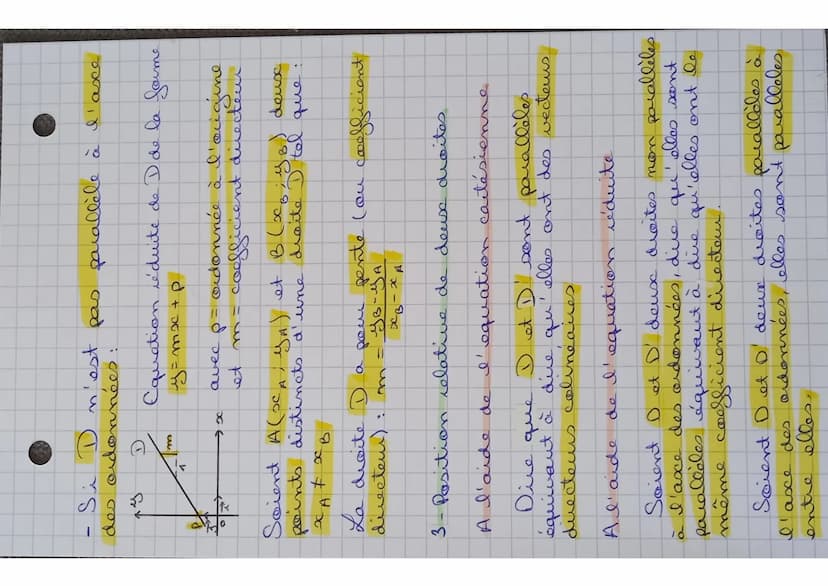 - Si D n'est pas parallèle à l'axe
des ordonnées :
Equation réduite de D de la forme
y = mx + p
avec p = ordonnée à l'origine
et m = coefficient directeur
y
D
m
1
P
x
0
Soient A(xA ; yA) et B(xB ; yB) deux
points distincts d'une droite D tel que :
xA ≠ xB
La droite D a pour pente (ou coefficient
directeur) : m = (yB - yA)/(xB - xA)
3 - Position relative de deux droites
A l'aide de l'équation cartésienne
Dire que D et D' sont parallèles
équivaut à dire qu'elles ont des vecteurs
directeurs colinéaires
A l'aide de l'equation réduite
Soient D et D' deux droites non parallèles
à l'axe des ordonnées, dire qu'elles sont
parallèles équivaut à dire qu'elles ont le
même coefficient directeur.
Soient D et D' deux droites parallèles à
l'axe des ordonnées, elles sont parallèles
entre elles.